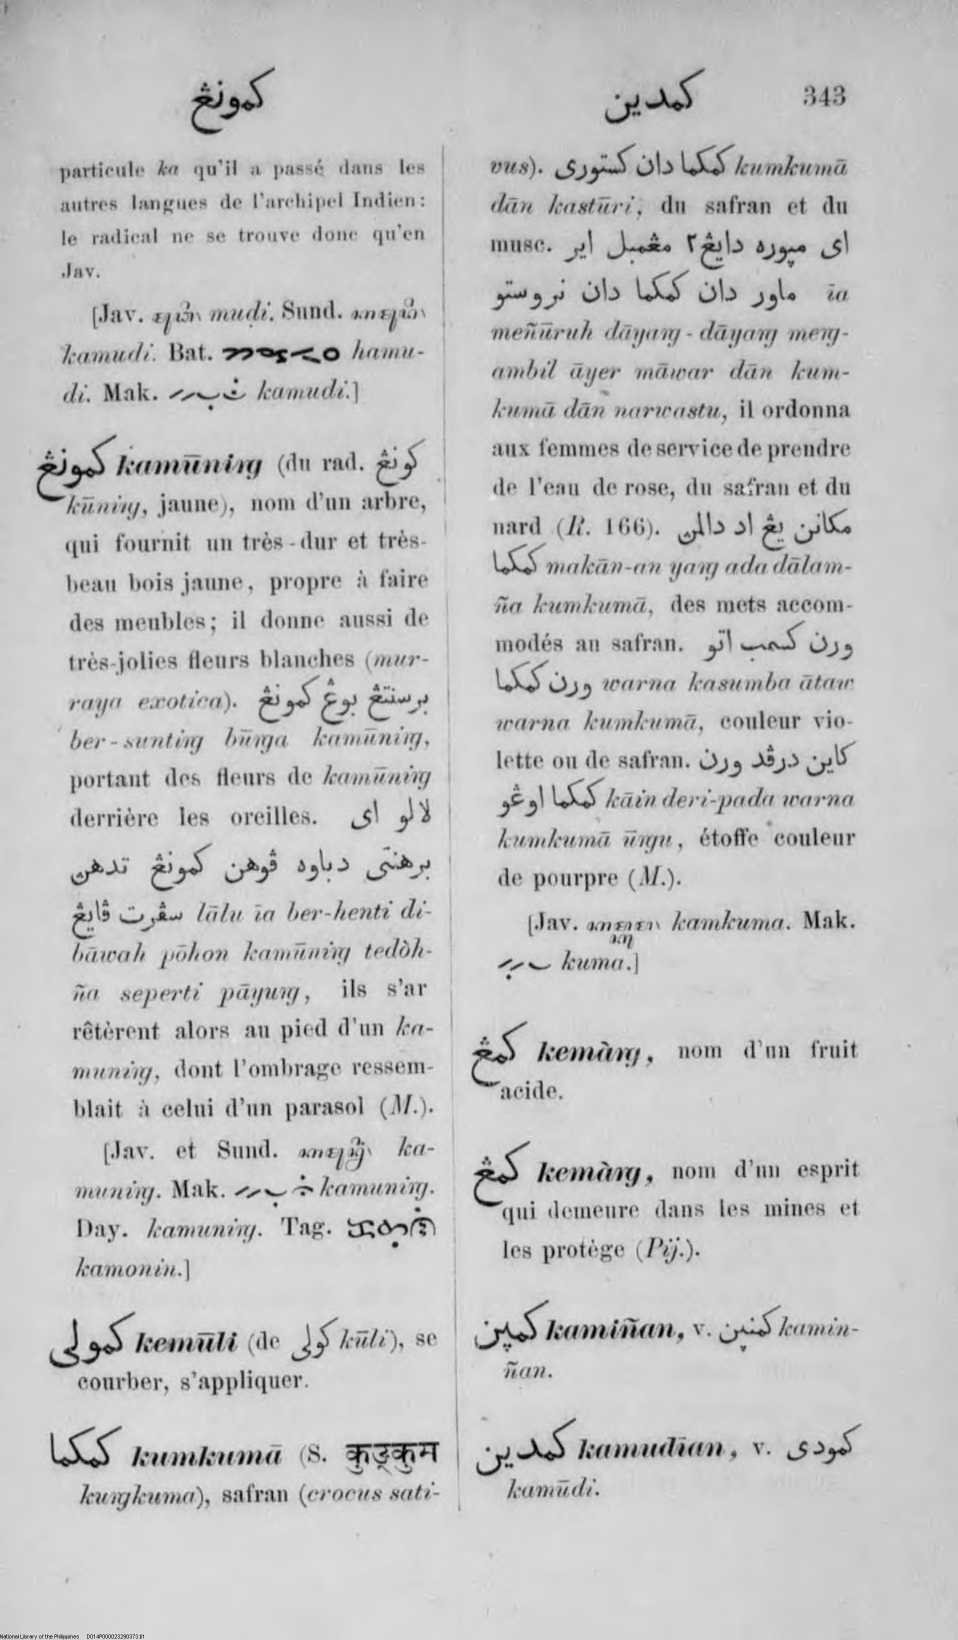 كمونڠ
كمدين 343
particule ka qu'il a passé dans les
autres langues de l'archipel Indien:
le radical ne se trouve donc qu'en
Jav.
[Jav. mudi. Sund.
kamudi. Bat. hamu-
di. Mak. kamudi.]
كمونڠ kamūning (du rad. كونڠ
kūning, jaune), nom d'un arbre,
qui fournit un très-dur et très-
beau bois jaune, propre à faire
des meubles; il donne aussi de
très-jolies fleurs blanches (mur-
raya exotica). برسنتڠ بوڠ كمونڠ
ber-sunting būnga kamūning,
portant des fleurs de kamūning
derrière les oreilles. لالو اى
برهنتى دباوه ڤوهن كمونڠ تدهن
سڤرت ڤايڠ lālu īa ber-henti di-
bāwah pōhon kamūning tedòh-
ña seperti pāyung, ils s'ar
rêtèrent alors au pied d'un ka-
muning, dont l'ombrage ressem-
blait à celui d'un parasol (M.).
[Jav. et Sund. ka-
muning. Mak. kamuning.
Day. kamuning. Tag.
kamonin.]
كمولى kemūli (de كولى kūli), se
courber, s'appliquer.
كمكما kumkumā (S. कुङ्कुम
kungkuma), safran (crocus sati-
vus). كمكما دان كستورى kumkumā
dān kastūri, du safran et du
musc. اى مپوره دايڠ٢ مڠمبل اير
ماور دان كمكما دان نروستو īa
meñūruh dāyang-dāyang meng-
ambil āyer māwar dān kum-
kumā dān narwastu, il ordonna
aux femmes de service de prendre
de l'eau de rose, du safran et du
nard (R. 166). مكانن يڠ اد دالمن
كمكما makān-an yang ada dālam-
ña kumkumā, des mets accom-
modés au safran. ورن كسمب اتو
ورن كمكما warna kasumba ātaw
warna kumkumā, couleur vio-
lette ou de safran. كاين درڤد ورن
كمكما اوڠو kāin deri-pada warna
kumkumā ūngu, étoffe couleur
de pourpre (M.).
[Jav. kamkuma. Mak.
kuma.]
كمڠ kemàng, nom d'un fruit
acide.
كمڠ kemàng, nom d'un esprit
qui demeure dans les mines et
les protège (Pij.).
كمپن kamiñan, v. كمنپن kamin-
ñan.
كمدين kamudīan, v. كمودى
kamūdi.
National Library of the Philippines